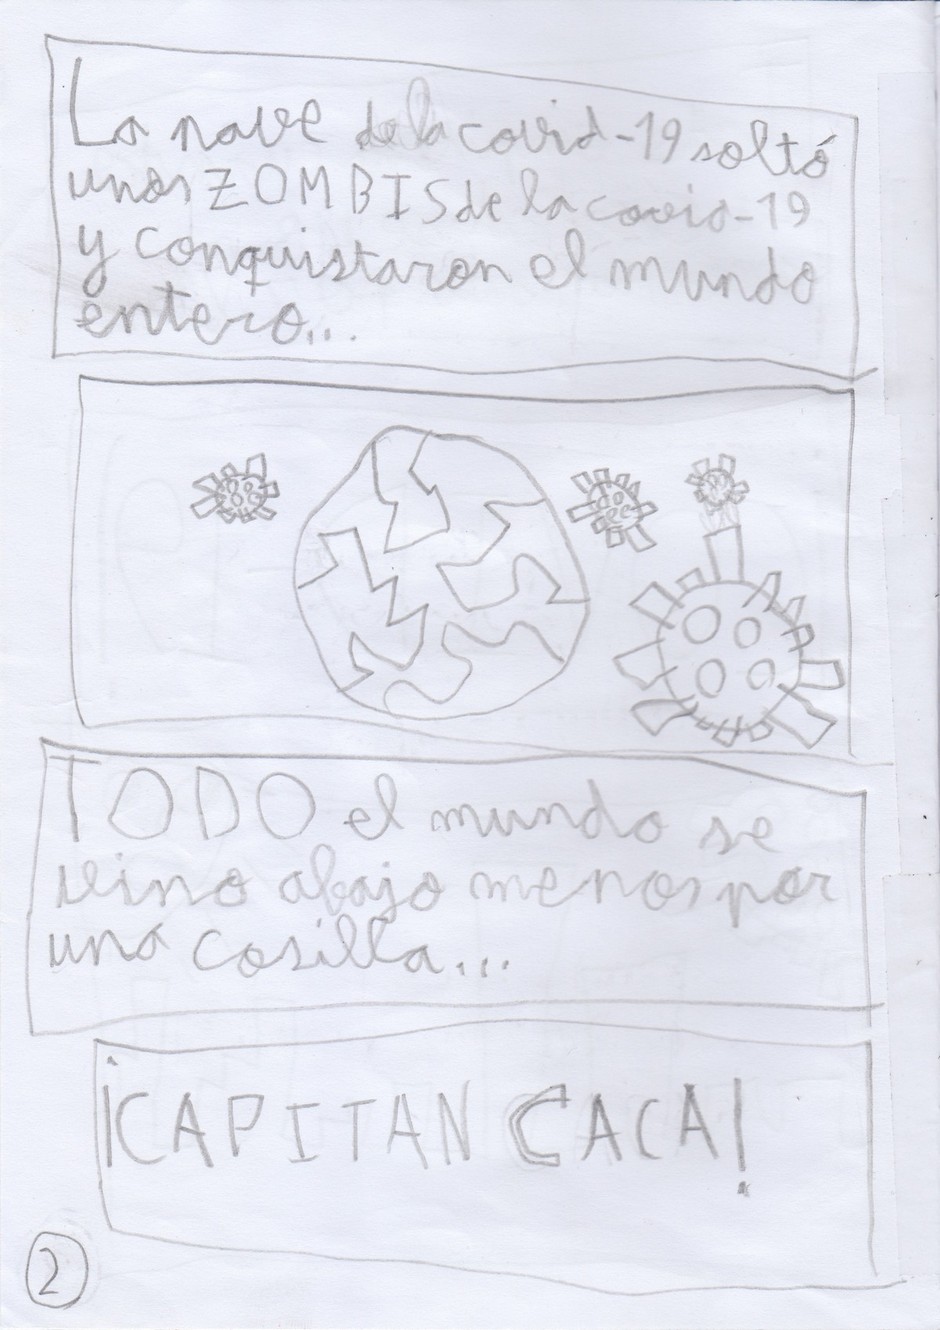 La nave de la covid-19 soltó
unos ZOMBIS de la covid-19
y conquistaron el mundo
entero...
TODO el mundo se
vino abajo menos por
una cosilla...
¡CAPITAN CACA!
2